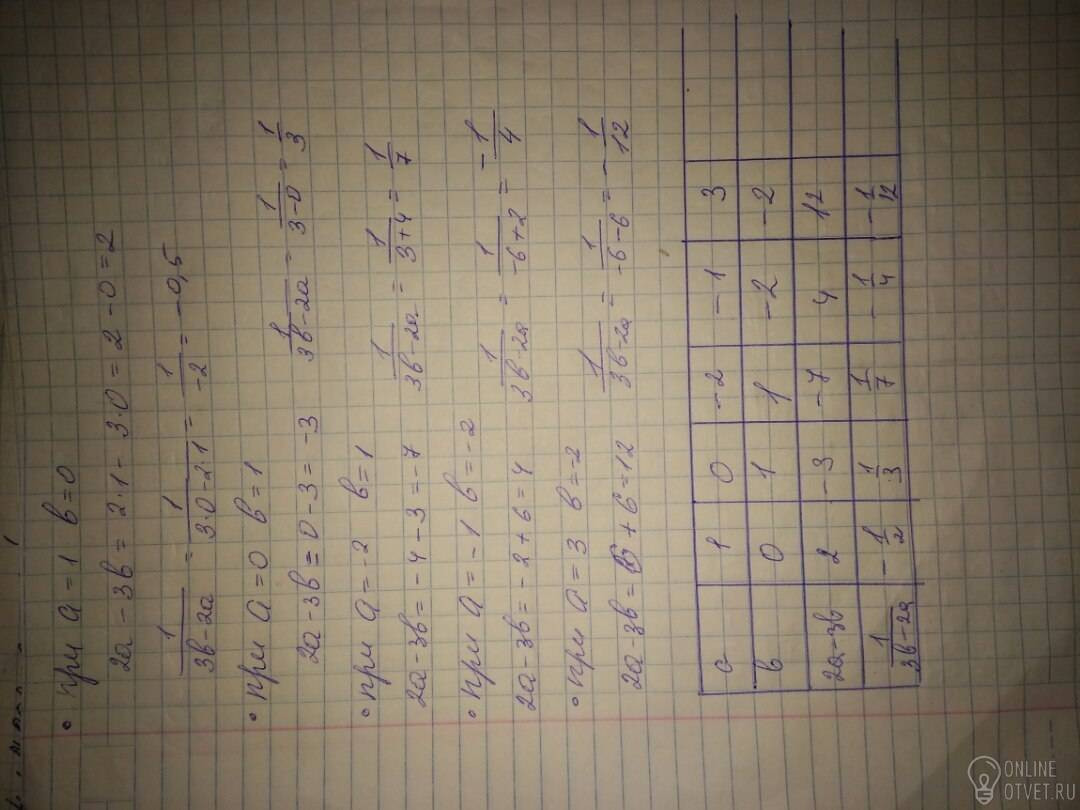 • при a=1 b=0
2a - 3b = 2·1 - 3·0 = 2 - 0 = 2
1/(3b-2a) = 1/(3·0-2·1) = 1/-2 = -0,5
• при a=0 b=1
2a-3b = 0-3 = -3 1/(3b-2a) = 1/(3-0) = 1/3
• при a=-2 b=1
2a-3b = -4-3 = -7 1/(3b-2a) = 1/(3+4) = 1/7
• при a=-1 b=-2
2a-3b = -2+6 = 4 1/(3b-2a) = 1/(-6+2) = -1/4
• при a=3 b=-2
2a-3b = 6+6 = 12 1/(3b-2a) = 1/(-6-6) = -1/12
a 1 0 -2 -1 3
b 0 1 1 -2 -2
2a-3b 2 -3 -7 4 12
1/(3b-2a) -1/2 1/3 1/7 -1/4 -1/12
ONLINE
OTVET.RU